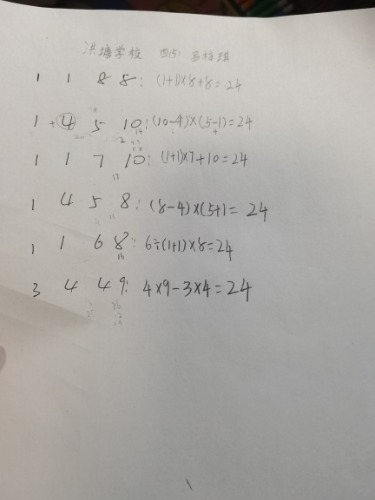 学校 四(5)
1 1 8 8: (1+1)×8+8=24
1 4 5 10: (10-4)×(5-1)=24
1 1 7 10: (1+1)×7+10=24
1 4 5 8: (8-4)×(5+1)=24
1 1 6 8: 6÷(1+1)×8=24
3 4 4 9: 4×9-3×4=24